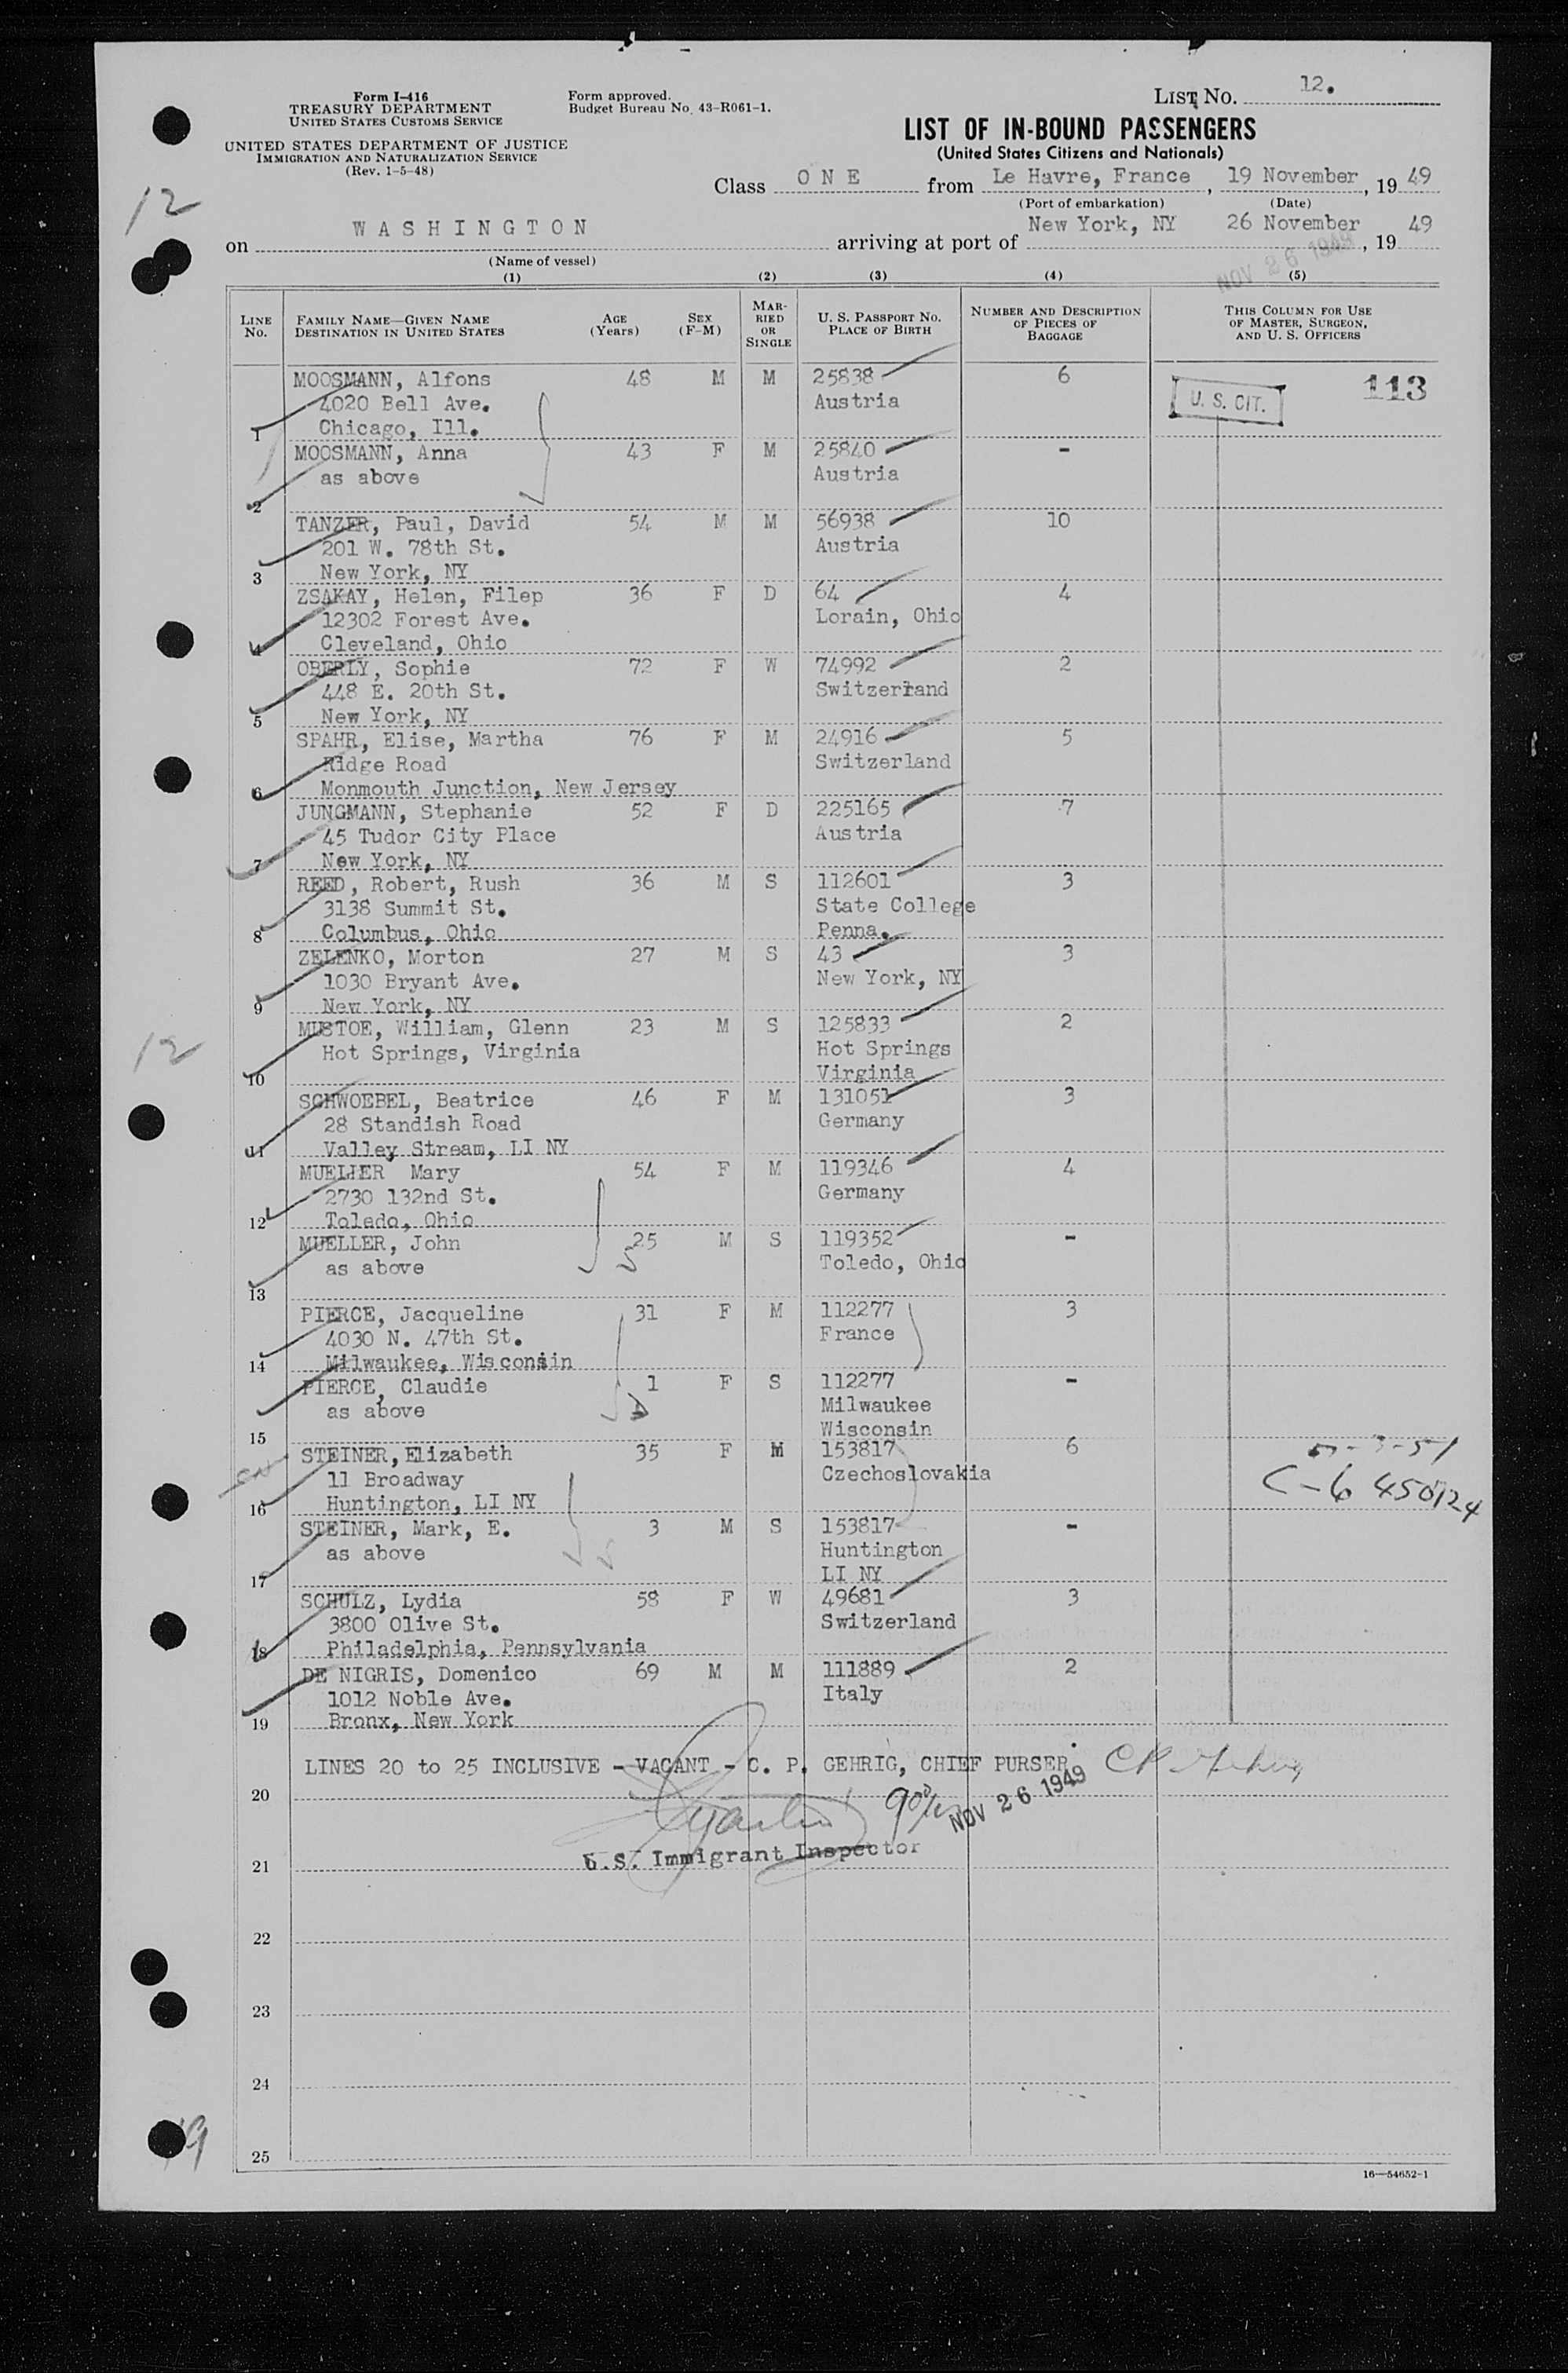 Form I-416
TREASURY DEPARTMENT
UNITED STATES CUSTOMS SERVICE
UNITED STATES DEPARTMENT OF JUSTICE
IMMIGRATION AND NATURALIZATION SERVICE
(Rev. 1-5-48)
Form approved.
Budget Bureau No. 43-R061-1.
LIST NO. 12.
LIST OF IN-BOUND PASSENGERS
(United States Citizens and Nationals)
Class O N E from Le Havre, France, 19 November, 19 49
(Port of embarkation) (Date)
on W A S H I N G T O N arriving at port of New York, NY 26 November, 19 49
(Name of vessel)
NOV 26 1949
12
(1) (2) (3) (4) (5)
LINE NO. FAMILY NAME—GIVEN NAME DESTINATION IN UNITED STATES AGE (Years) SEX (F-M) MARRIED OR SINGLE U. S. PASSPORT NO. PLACE OF BIRTH NUMBER AND DESCRIPTION OF PIECES OF BAGGAGE THIS COLUMN FOR USE OF MASTER, SURGEON, AND U. S. OFFICERS
MOOSMANN, Alfons 48 M M 25838 6 U. S. CIT. 113
4020 Bell Ave. Austria
1 Chicago, Ill.
MOOSMANN, Anna 43 F M 25840 -
as above Austria
2
TANZER, Paul, David 54 M M 56938 10
201 W. 78th St. Austria
3 New York, NY
ZSAKAY, Helen, Filep 36 F D 64 4
12302 Forest Ave. Lorain, Ohio
4 Cleveland, Ohio
OBERLY, Sophie 72 F W 74992 2
448 E. 20th St. Switzerland
5 New York, NY
SPAHR, Elise, Martha 76 F M 24916 5
Ridge Road Switzerland
6 Monmouth Junction, New Jersey
JUNGMANN, Stephanie 52 F D 225165 7
45 Tudor City Place Austria
7 New York, NY
REED, Robert, Rush 36 M S 112601 3
3138 Summit St. State College
8 Columbus, Ohio Penna.
ZELENKO, Morton 27 M S 43 3
1030 Bryant Ave. New York, NY
9 New York, NY
MUSTOE, William, Glenn 23 M S 125833 2
Hot Springs, Virginia Hot Springs
10 Virginia
12
SCHWOEBEL, Beatrice 46 F M 131051 3
28 Standish Road Germany
11 Valley Stream, LI NY
MUELLER Mary 54 F M 119346 4
2730 132nd St. Germany
12 Toledo, Ohio
MUELLER, John 25 M S 119352 -
as above Toledo, Ohio
13
PIERCE, Jacqueline 31 F M 112277 3
4030 N. 47th St. France
14 Milwaukee, Wisconsin
PIERCE, Claudie 1 F S 112277 -
as above Milwaukee
15 Wisconsin
STEINER, Elizabeth 35 F M 153817 6
11 Broadway Czechoslovakia C-6 450124
16 Huntington, LI NY
STEINER, Mark, E. 3 M S 153817 -
as above Huntington
17 LI NY
SCHULZ, Lydia 58 F W 49681 3
3800 Olive St. Switzerland
18 Philadelphia, Pennsylvania
DE NIGRIS, Domenico 69 M M 111889 2
1012 Noble Ave. Italy
19 Bronx, New York
LINES 20 to 25 INCLUSIVE - VACANT - C. P. GEHRIG, CHIEF PURSER.
20
NOV 26 1949
U.S. Immigrant Inspector
21
22
23
24
19
25
16—54652-1